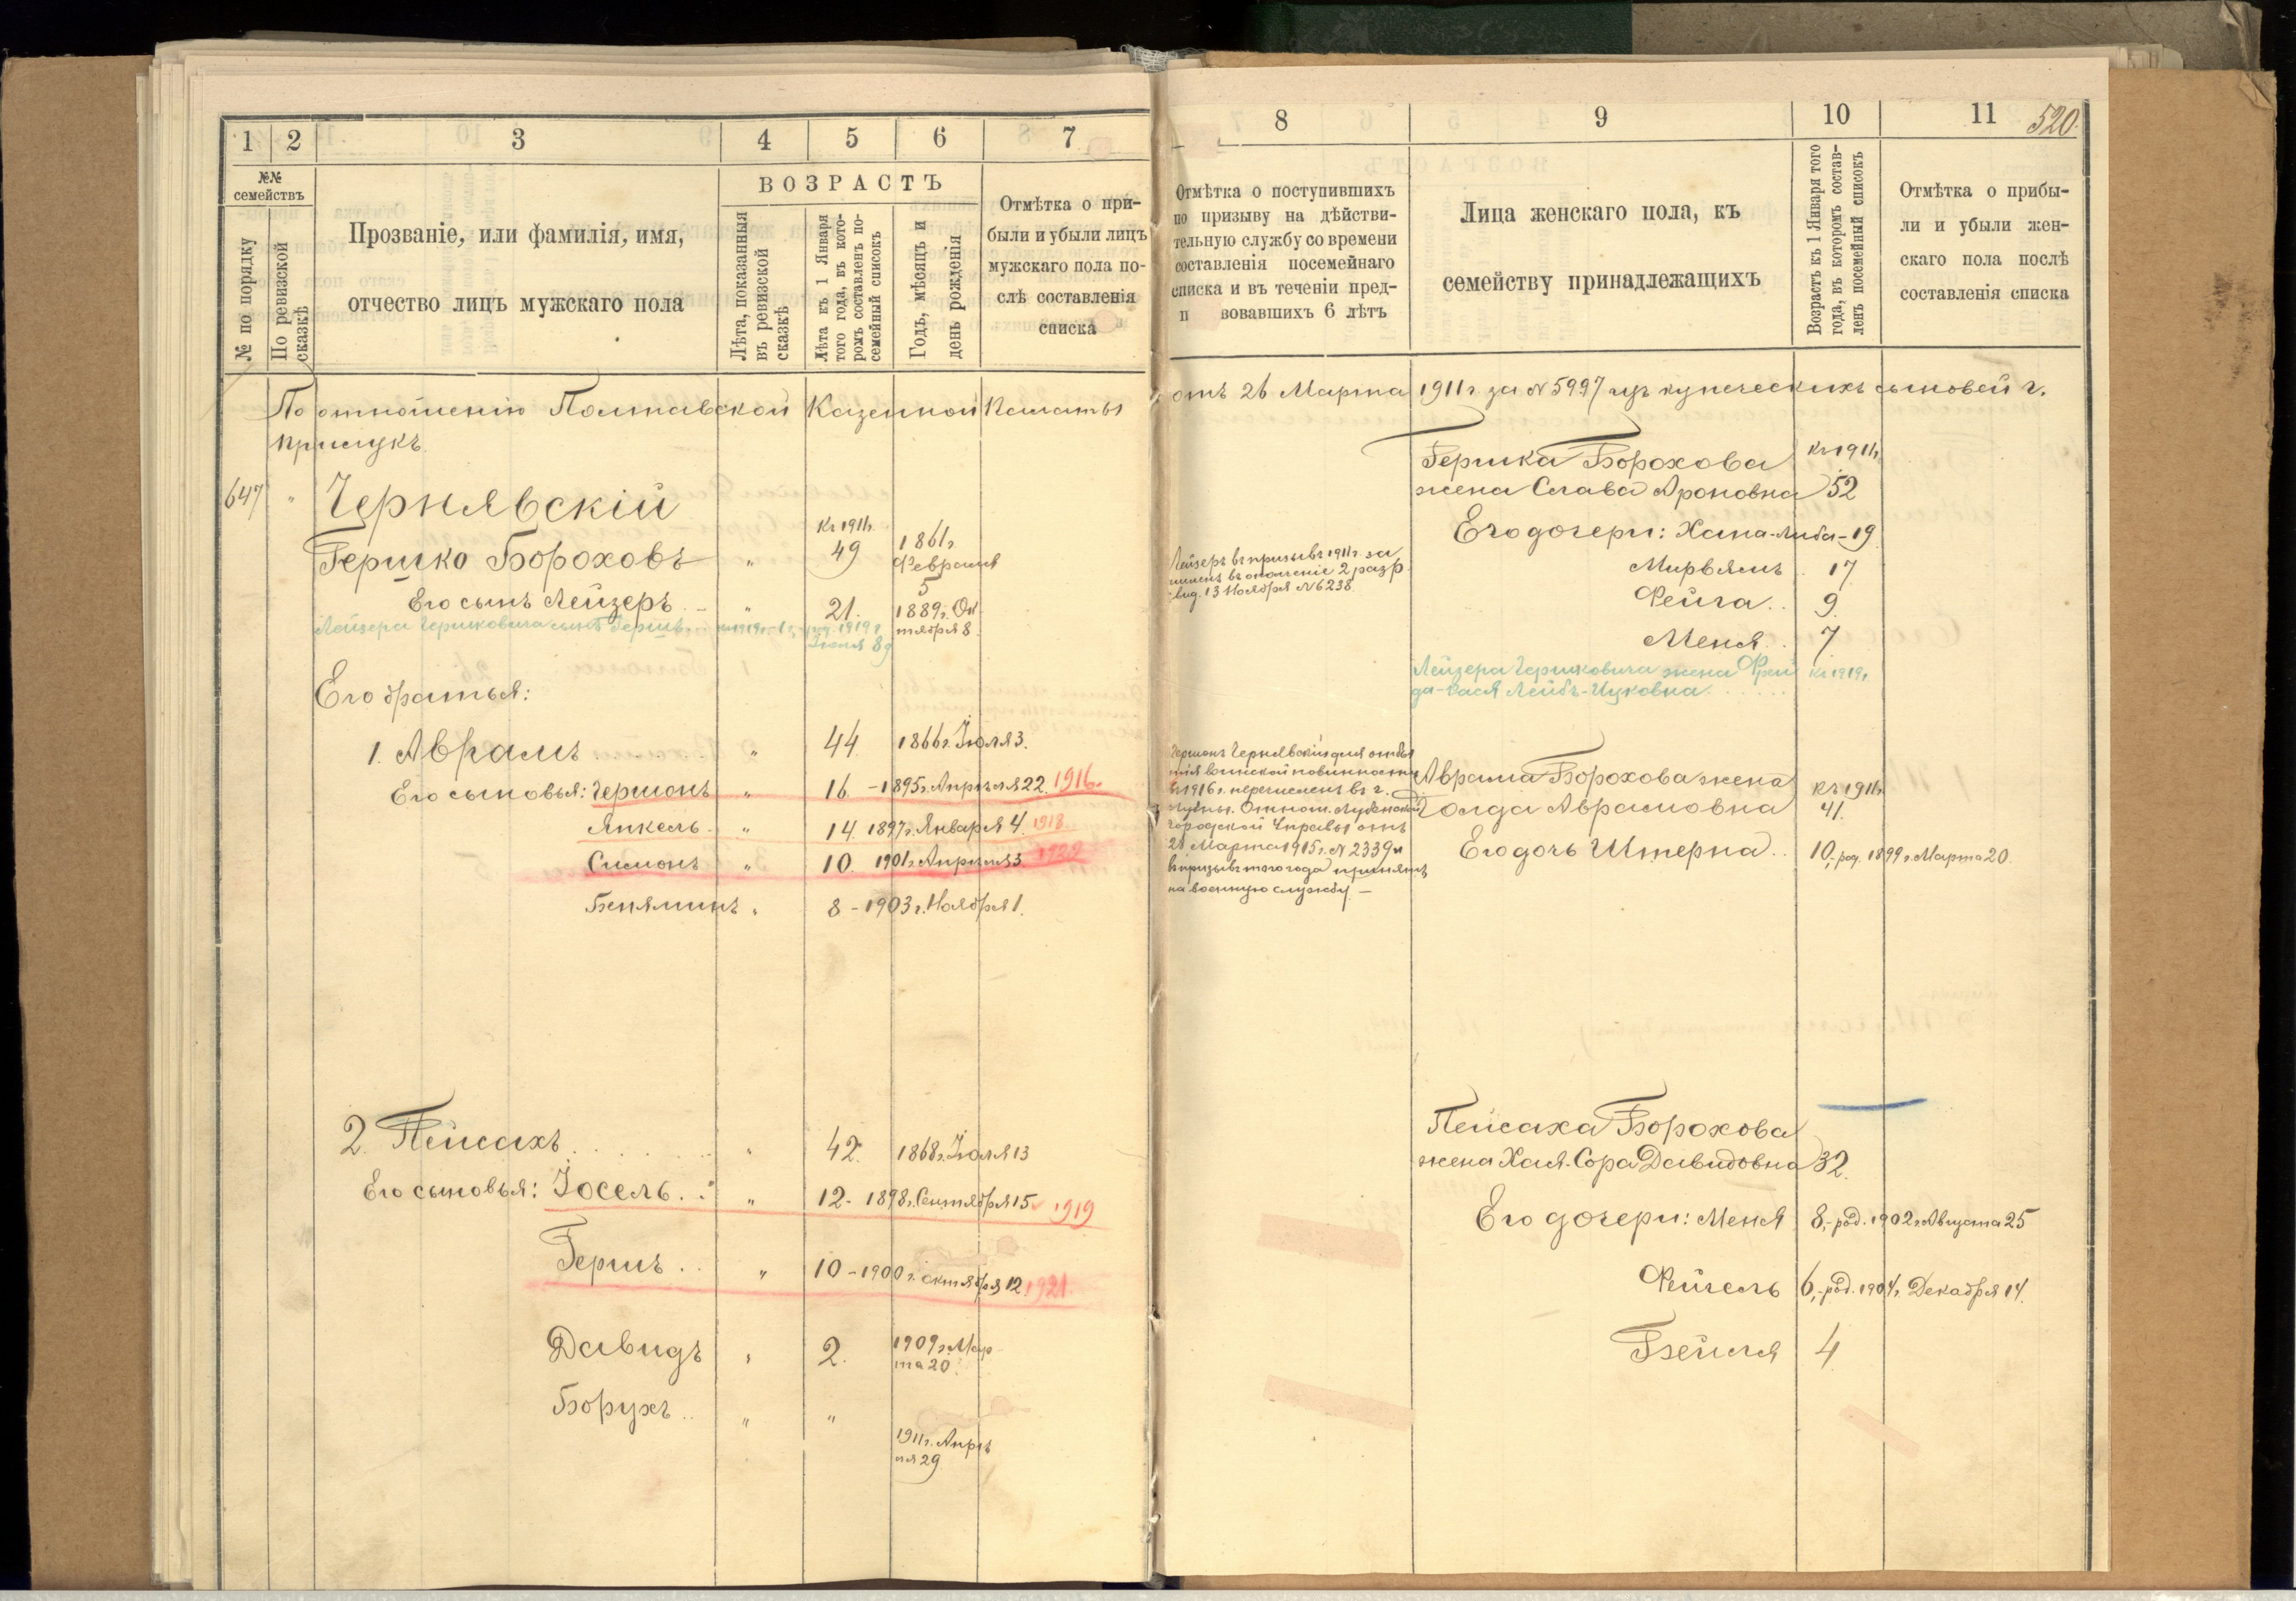 1 2 3 4 5 6 7
№№ семействъ
№ по порядку
По ревизской сказкѣ
Прозваніе, или фамилія, имя,
отчество лицъ мужскаго пола
ВОЗРАСТЪ
Лѣта, показанныя
въ ревизской
сказкѣ
Лѣта къ 1 Января
того года, въ кото-
ромъ составленъ по-
семейный списокъ
Годъ, мѣсяцъ и
день рожденія
Отмѣтка о при-
были и убыли лицъ
мужскаго пола по-
слѣ составленія
списка
По отношенію Полтавской Казенной Палаты
Прилукъ
647 " Чернявскій
къ 1911г.
Гершко Бороховъ " 49 1861г.
Февраля
5
Его сынъ Лейзеръ " 21. 1889г. Ок
тября 8.
Лейзера Гершковича сынъ Гершъ род. 1919 г.
Его братья:
1. Аврамъ " 44 1866г. Іюля 3.
Его сыновья: Гершонъ " 16 - 1895г. Апрѣля 22. 1916.
Янкель " 14. 1897г. Января 4. 1918.
Симонъ " 10. 1901г. Апрѣля 3.
Беняминъ " 8 - 1903г. Ноября 1.
2. Пейсахъ " 42. 1868г. Іюля 13
Его сыновья: Іосель " 12 - 1898г. Сентября 15 1919
Гершъ " 10 - 1900г. октября 12. 1921.
Давидъ " 2. 1909г. Мар
та 20.
Борухъ " "
1911г. Апрѣ
ля 29
8 9 10 11 520.
Отмѣтка о поступившихъ
по призыву на дѣйстви-
тельную службу со времени
составленія посемейнаго
списка и въ теченіи пред-
п вовавшихъ 6 лѣтъ
Лица женскаго пола, къ
семейству принадлежащихъ
Возрастъ къ 1 Января того
года, въ которомъ состав-
ленъ посемейный списокъ
Отмѣтка о прибы-
ли и убыли жен-
скаго пола послѣ
составленія списка
отъ 26 Марта 1911г. за № 5997 изъ купеческихъ сыновей г.
Гершка Борохова къ 1911г.
жена Слава Ароновна 52
Его дочери: Хана-Либа - 19
Лейзеръ въ призывъ 1911г. за
численъ въ ополченіе 2 разр.
вид. 13 Ноября № 6238.
Мирьямъ 17
Фейга 9.
Меня 7
Лейзера Гершковича жена Фрей къ 1919г.
да-Хася Лейбъ-Ицковна
Гершонъ Чернявскій для отбы
тія воинской повинности
въ 1916г. перечисленъ въ г.
Лубны. Отнош. Лубенской
Городской Управы отъ
21 Марта 1915г. № 2339 и
въ призывъ того года принятъ
на военную службу. —
Аврама Борохова жена къ 1911г.
Голда Абрамовна 41.
Его дочь Штерна 10, род. 1899 г. Марта 20.
Пейсаха Борохова
жена Хая-Сора Давидовна 32.
Его дочери: Меня 8, - род. 1902г. Августа 25
Фейгель 6, - род. 1904г. Декабря 14.
Бейля 4